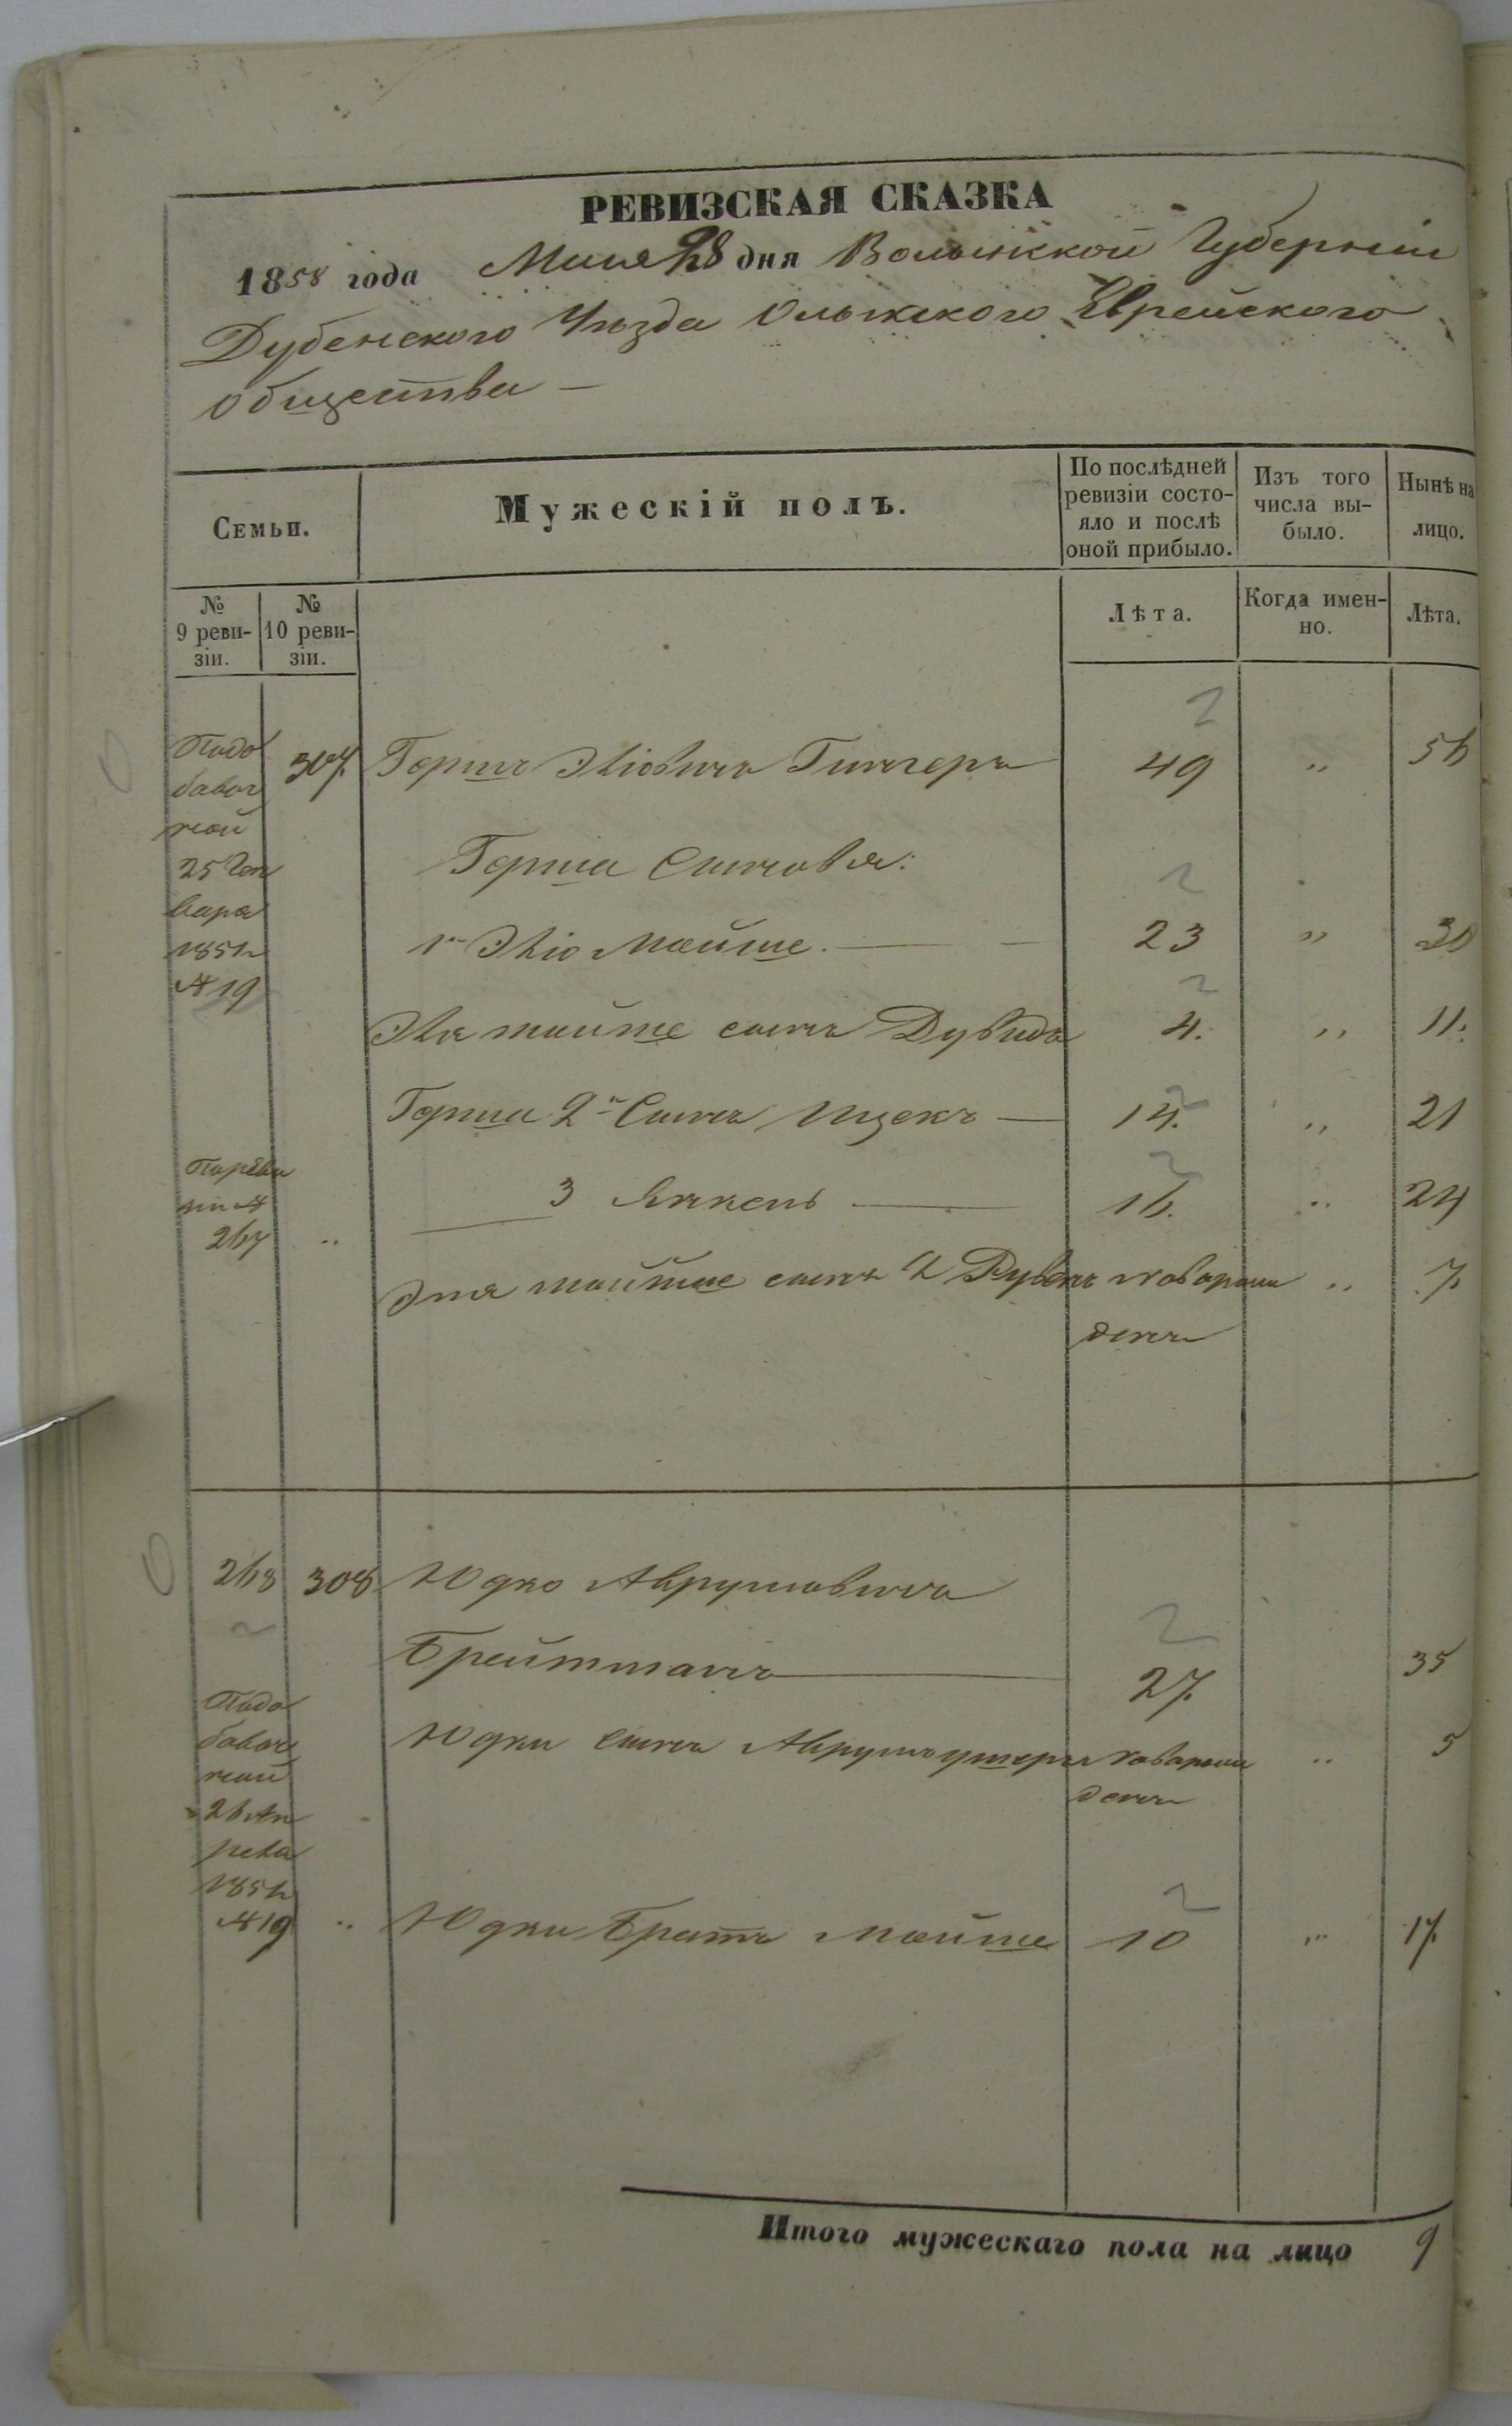 РЕВИЗСКАЯ СКАЗКА
1858 года Маия 28 дня Волынской Губерніи
Дубенского Уѣзда Олыкского Еврейского
общества —
Семьи.
Мужескій полъ.
По послѣдней ревизіи состо-
яло и послѣ
оной прибыло.
Изъ того
числа вы-
было.
Нынѣ на
лицо.
№
9 реви-
зіи.
№
10 реви-
зіи.
Лѣта.
Когда имен-
но.
Лѣта.
Подо
бавоч
ной
25 Ген
варя
1851 г
№ 19
307. Герш Эліовичъ 49 " 56
Герша Сыновья:
1й Эліо Мойше — 23 " 30
Эля мойше сынъ Дувидъ 4. " 11.
Герша 2й Сынъ Ицекъ — 14. " 21
По реви
зіи №
267 "
— 3 Янкель — 16. " 24
Эля мойше сынъ 2 Рувенъ новорож " 7.
денъ
268 308 Юдко Аврумовичъ
Бреитманъ — 27. 35
Подо
бавоч
ной
26 Ап
реля
1851 г
№ 19 "
Юдки сынъ Аврумъ новорож " 5
денъ
Юдки Братъ Мойше 10 " 17.
Итого мужескаго пола на лицо 9